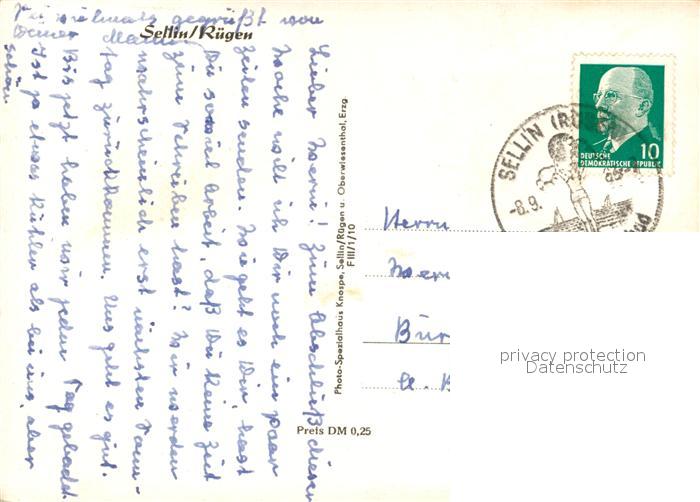 Sellin/Rügen
Lieber Werni! Zum Abschluß dieser
Woche will ich Dir noch ein paar
Zeilen senden. Wie geht es Dir, hast
Du soviel Arbeit, daß Du keine Zeit
zum Schreiben hast? Wir werden
wahrscheinlich erst nächsten Sonn-
tag zurückkommen. Uns geht es gut.
Bis jetzt haben wir jeden Tag gebadet.
Ist ja etwas kühler als bei uns, aber
schön
vielmals gegrüßt von
Deiner
Photo-Spezialhaus Knospe, Sellin/Rügen u. Oberwiesenthal, Erzg.
F III/1/10
Preis DM 0,25
DEUTSCHE
DEMOKRATISCHE REPUBLIK
10
SELLIN (RÜGEN)
-8.9.
Herrn
Wern
Bur
privacy protection
Datenschutz